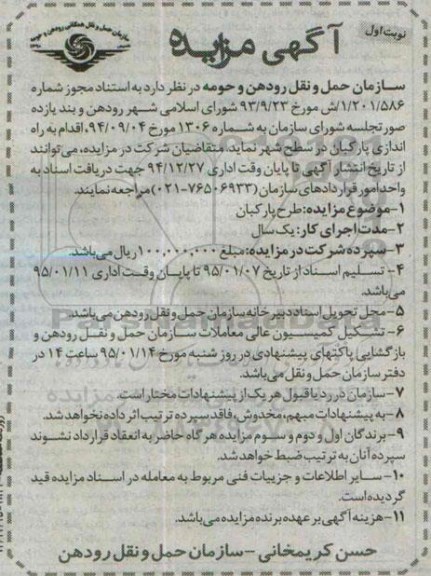 نوبت اول
آگهی مزایده
سازمان حمل و نقل همگانی رودهن و حومه
سازمان حمل و نقل رودهن و حومه در نظر دارد به استناد مجوز شماره
۱/۲۰۱/۵۸۶/ش مورخ ۹۳/۹/۲۳ شورای اسلامی شهر رودهن و بند یازده
صورتجلسه شورای سازمان به شماره ۱۳۰۶ مورخ ۹۴/۰۹/۰۴، اقدام به راه
اندازی پارکبان در سطح شهر نماید، متقاضیان شرکت در مزایده، می‌توانند
از تاریخ انتشار آگهی تا پایان وقت اداری ۹۴/۱۲/۲۷ جهت دریافت اسناد به
واحد امور قراردادهای سازمان (۷۶۵۰۶۹۳۳-۰۲۱) مراجعه نمایند.
۱-موضوع مزایده: طرح پارکبان
۲-مدت اجرای کار: یک سال
۳-سپرده شرکت در مزایده: مبلغ ۱۰۰,۰۰۰,۰۰۰ ریال می‌باشد.
۴- تسلیم اسناد از تاریخ ۹۵/۰۱/۰۷ تا پایان وقت اداری ۹۵/۰۱/۱۱
می‌باشد.
۵-محل تحویل اسناد دبیرخانه سازمان حمل و نقل رودهن می‌باشد.
۶- تشکیل کمیسیون عالی معاملات سازمان حمل و نقل رودهن و
بازگشایی پاکتهای پیشنهادی در روز شنبه مورخ ۹۵/۰۱/۱۴ ساعت ۱۴ در
دفتر سازمان حمل و نقل می‌باشد.
۷-سازمان در رد یا قبول هر یک از پیشنهادات مختار است.
۸-به پیشنهادات مبهم، مخدوش، فاقد سپرده ترتیب اثر داده نخواهد شد.
۹-برندگان اول و دوم و سوم مزایده هرگاه حاضر به انعقاد قرارداد نشوند
سپرده آنان به ترتیب ضبط خواهد شد.
۱۰-سایر اطلاعات و جزییات فنی مربوط به معامله در اسناد مزایده قید
گردیده است.
۱۱-هزینه آگهی بر عهده برنده مزایده می‌باشد.
حسن کریمخانی - سازمان حمل و نقل رودهن